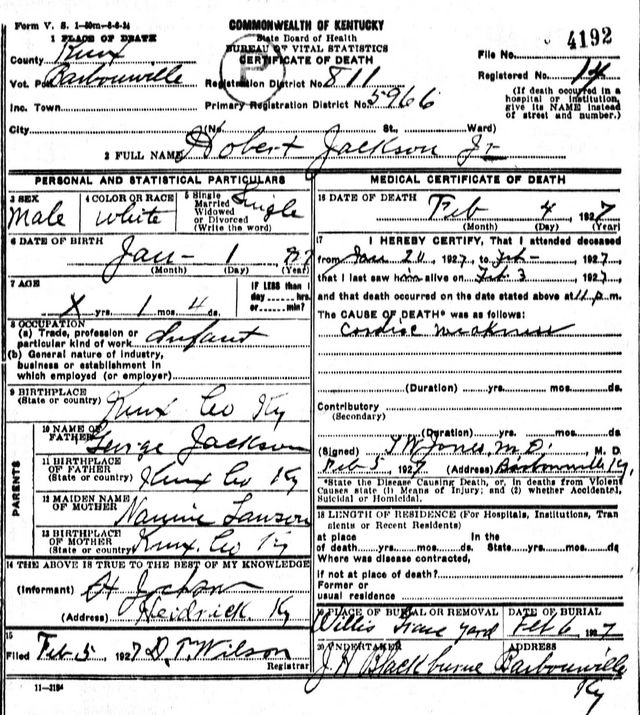 Form V. S. 1-50m-6-6-24
1 PLACE OF DEATH
COMMONWEALTH OF KENTUCKY
State Board of Health
BUREAU OF VITAL STATISTICS
CERTIFICATE OF DEATH
File No. 4192
County Knox
Vot. Pct. Barbourville
Registration District No. 811
Registered No. 14
Inc. Town
Primary Registration District No. 5966
(If death occurred in a hospital or institution, give its NAME instead of street and number.)
City (No. St., Ward)
2 FULL NAME Hobert Jackson Jr
PERSONAL AND STATISTICAL PARTICULARS
3 SEX Male
4 COLOR OR RACE White
5 Single Married Widowed or Divorced (Write the word) Single
6 DATE OF BIRTH Jan - 1
(Month) (Day) (Year)
7 AGE X yrs. 1 mos. 4 ds.
IF LESS than 1 day ... hrs. or ... min?
8 OCCUPATION
(a) Trade, profession or particular kind of work Infant
(b) General nature of industry, business or establishment in which employed (or employer)
9 BIRTHPLACE (State or country) Knox Co Ky
PARENTS
10 NAME OF FATHER George Jackson
11 BIRTHPLACE OF FATHER (State or country) Knox Co Ky
12 MAIDEN NAME OF MOTHER Nannie Lawson
13 BIRTHPLACE OF MOTHER (State or country) Knox. Co Ky
14 THE ABOVE IS TRUE TO THE BEST OF MY KNOWLEDGE
(Informant) Jackson
(Address) Heidrick Ky
15
Filed Feb 5 1927 D. T. Wilson
Registrar
11-3184
MEDICAL CERTIFICATE OF DEATH
16 DATE OF DEATH Feb 4 1927
(Month) (Day) (Year)
17 I HEREBY CERTIFY, That I attended deceased
from Jan 1927, to Feb - 1927
that I last saw him alive on Feb. 3 1927
and that death occurred on the date stated above at 11 p.m.
The CAUSE OF DEATH* was as follows:
Cardiac weakness
(Duration) yrs. mos. ds.
Contributory
(Secondary)
(Duration) yrs. mos. ds.
(Signed) Jones, M.D. M. D.
Feb 5, 1927 (Address) Barbourville Ky.
*State the Disease Causing Death, or, in deaths from Violent Causes state (1) Means of Injury; and (2) whether Accidental, Suicidal or Homicidal.
18 LENGTH OF RESIDENCE (For Hospitals, Institutions, Transients or Recent Residents)
at place of death yrs. mos. ds. In the State yrs. mos. ds.
Where was disease contracted,
if not at place of death?
Former or usual residence
19 PLACE OF BURIAL OR REMOVAL Willis Grave yard
DATE OF BURIAL Feb 6 1927
20 UNDERTAKER J H Blackburne
ADDRESS Barbourville Ky